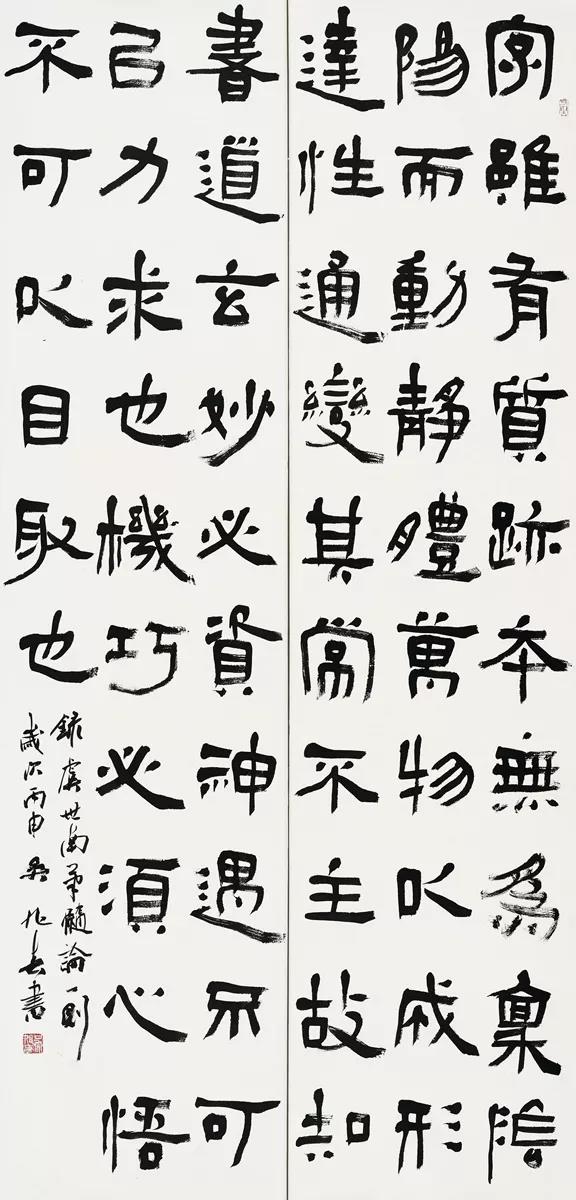 字雖有質跡本無爲稟陰
陽而動靜體萬物以成形
達性通變其常不主故知
書道玄妙必資神遇不可
以力求也機巧必須心悟
不可以目取也
錄虞世南筆髓論一則
歲次丙申吳書